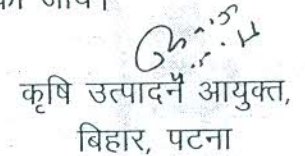 की जाय।
कृषि उत्पादन आयुक्त,
बिहार, पटना